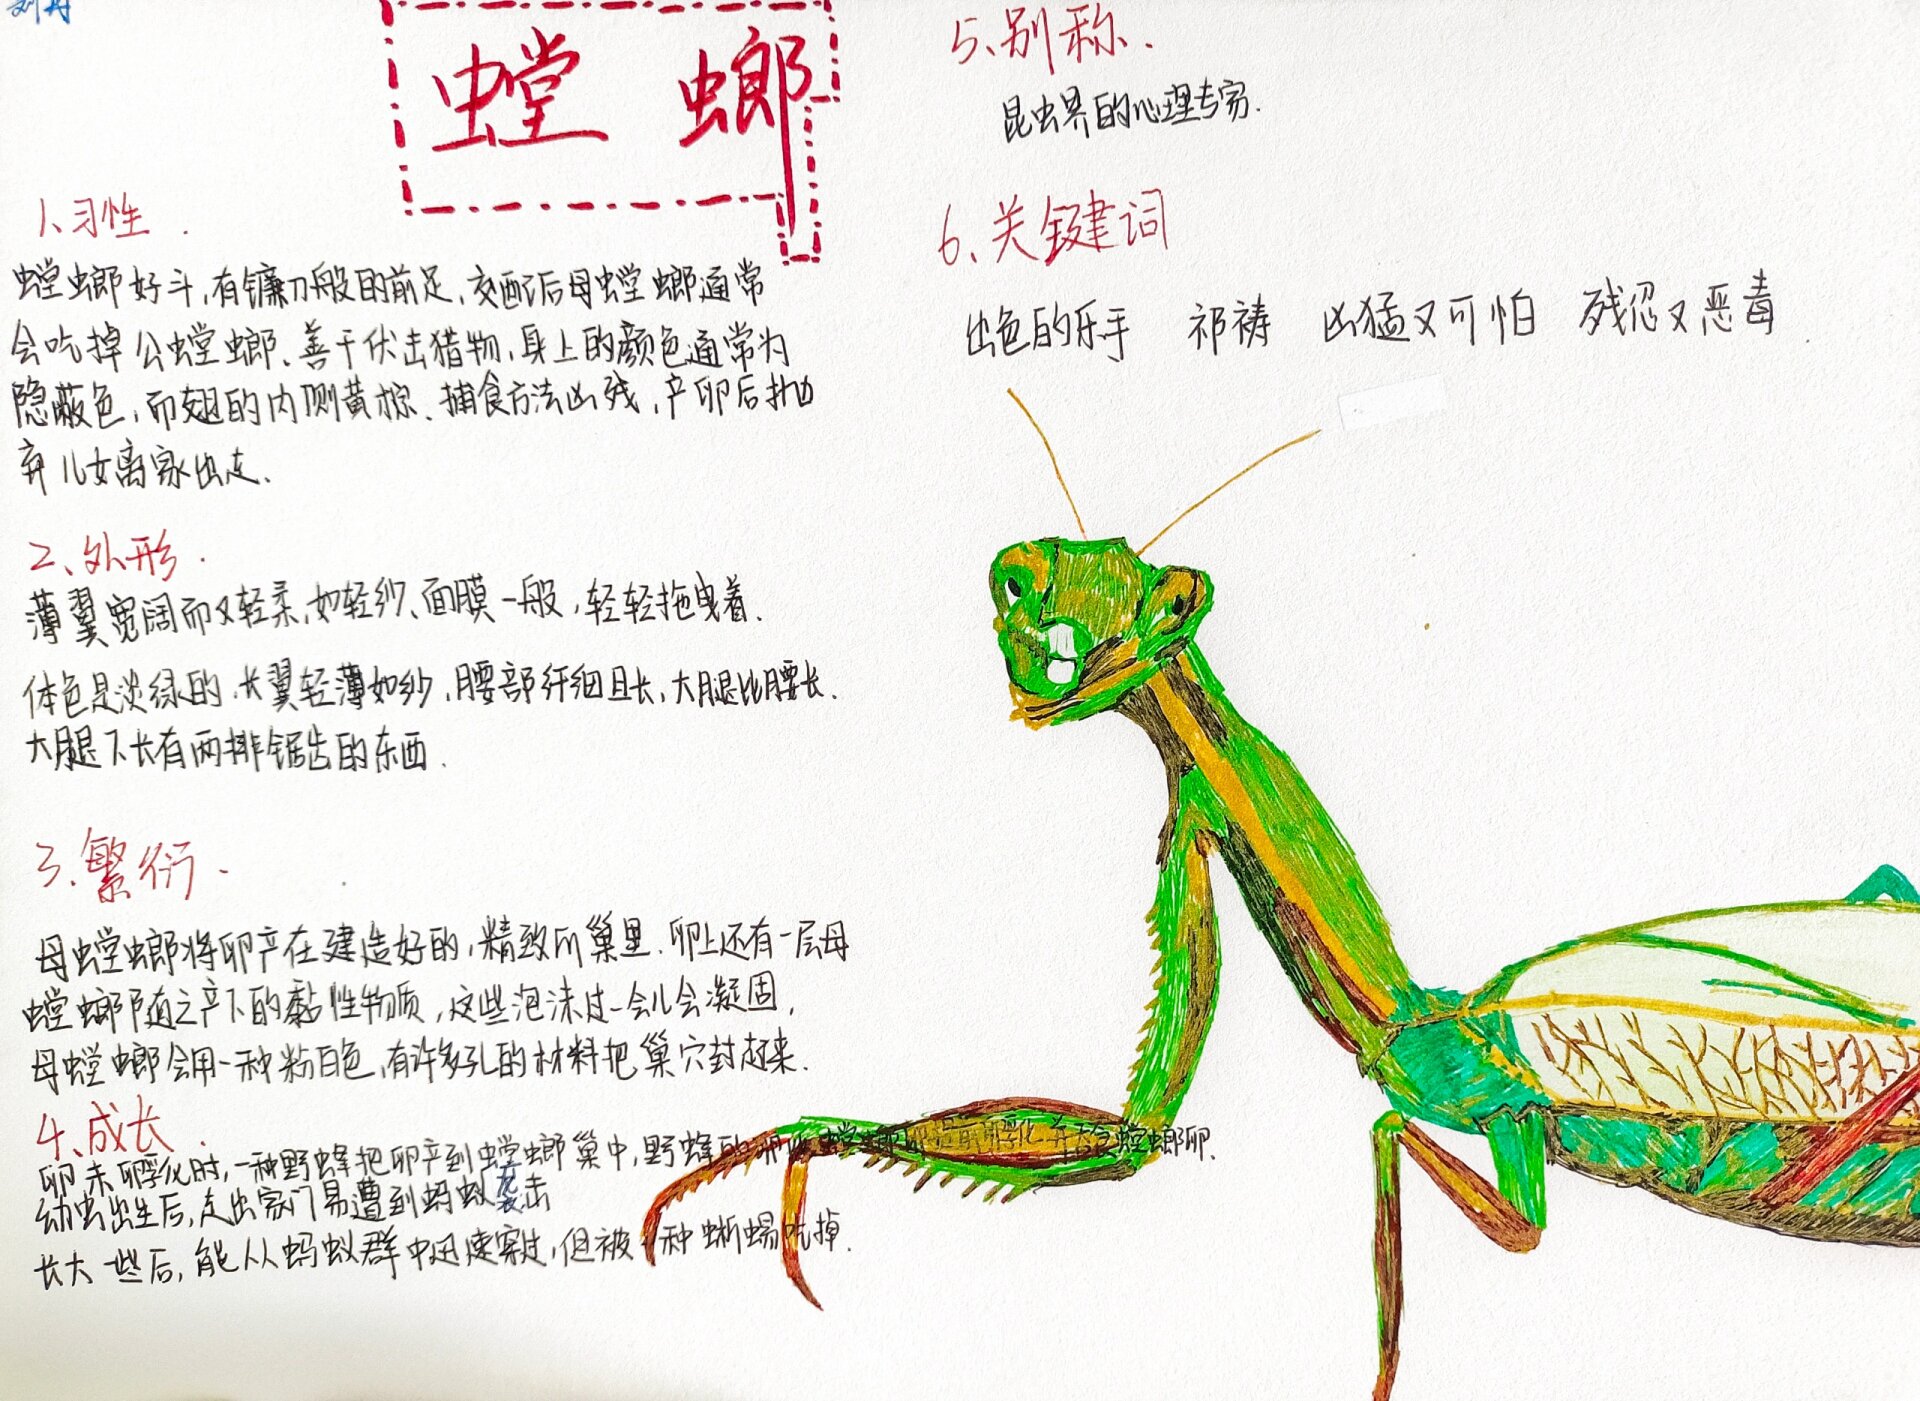 螳螂
1、习性.
螳螂好斗,有镰刀般的前足,交配后母螳螂通常
会吃掉公螳螂、善于伏击猎物,身上的颜色通常为
隐蔽色,而翅的内侧黄棕、捕食方法凶残,产卵后抛
弃儿女离家出走、
2、外形.
薄翼宽阔而又轻柔,如轻纱、面膜一般,轻轻拖曳着.
体色是淡绿的、长翼轻薄如纱,腰部纤细且长,大腿比腰长.
大腿下长有两排锯齿的东西.
3.繁衍.
母螳螂将卵产在建造好的,精致的巢里.卵上还有一层母
螳螂随之产下的黏性物质,这些泡沫过一会儿会凝固,
母螳螂会用一种粉白色,有许多孔的材料把巢穴封起来.
4、成长.
卵未孵化时,一种野蜂把卵产到螳螂巢中,野蜂的卵比螳螂卵提前孵化并吞食螳螂卵.
幼虫出生后,走出家门易遭到蚂蚁袭击
长大一些后,能从蚂蚁群中迅速穿过,但被一种蜥蜴吃掉.
5、别称.
昆虫界的心理专家.
6、关键词
出色的乐手 祁祷 凶猛又可怕 残忍又恶毒